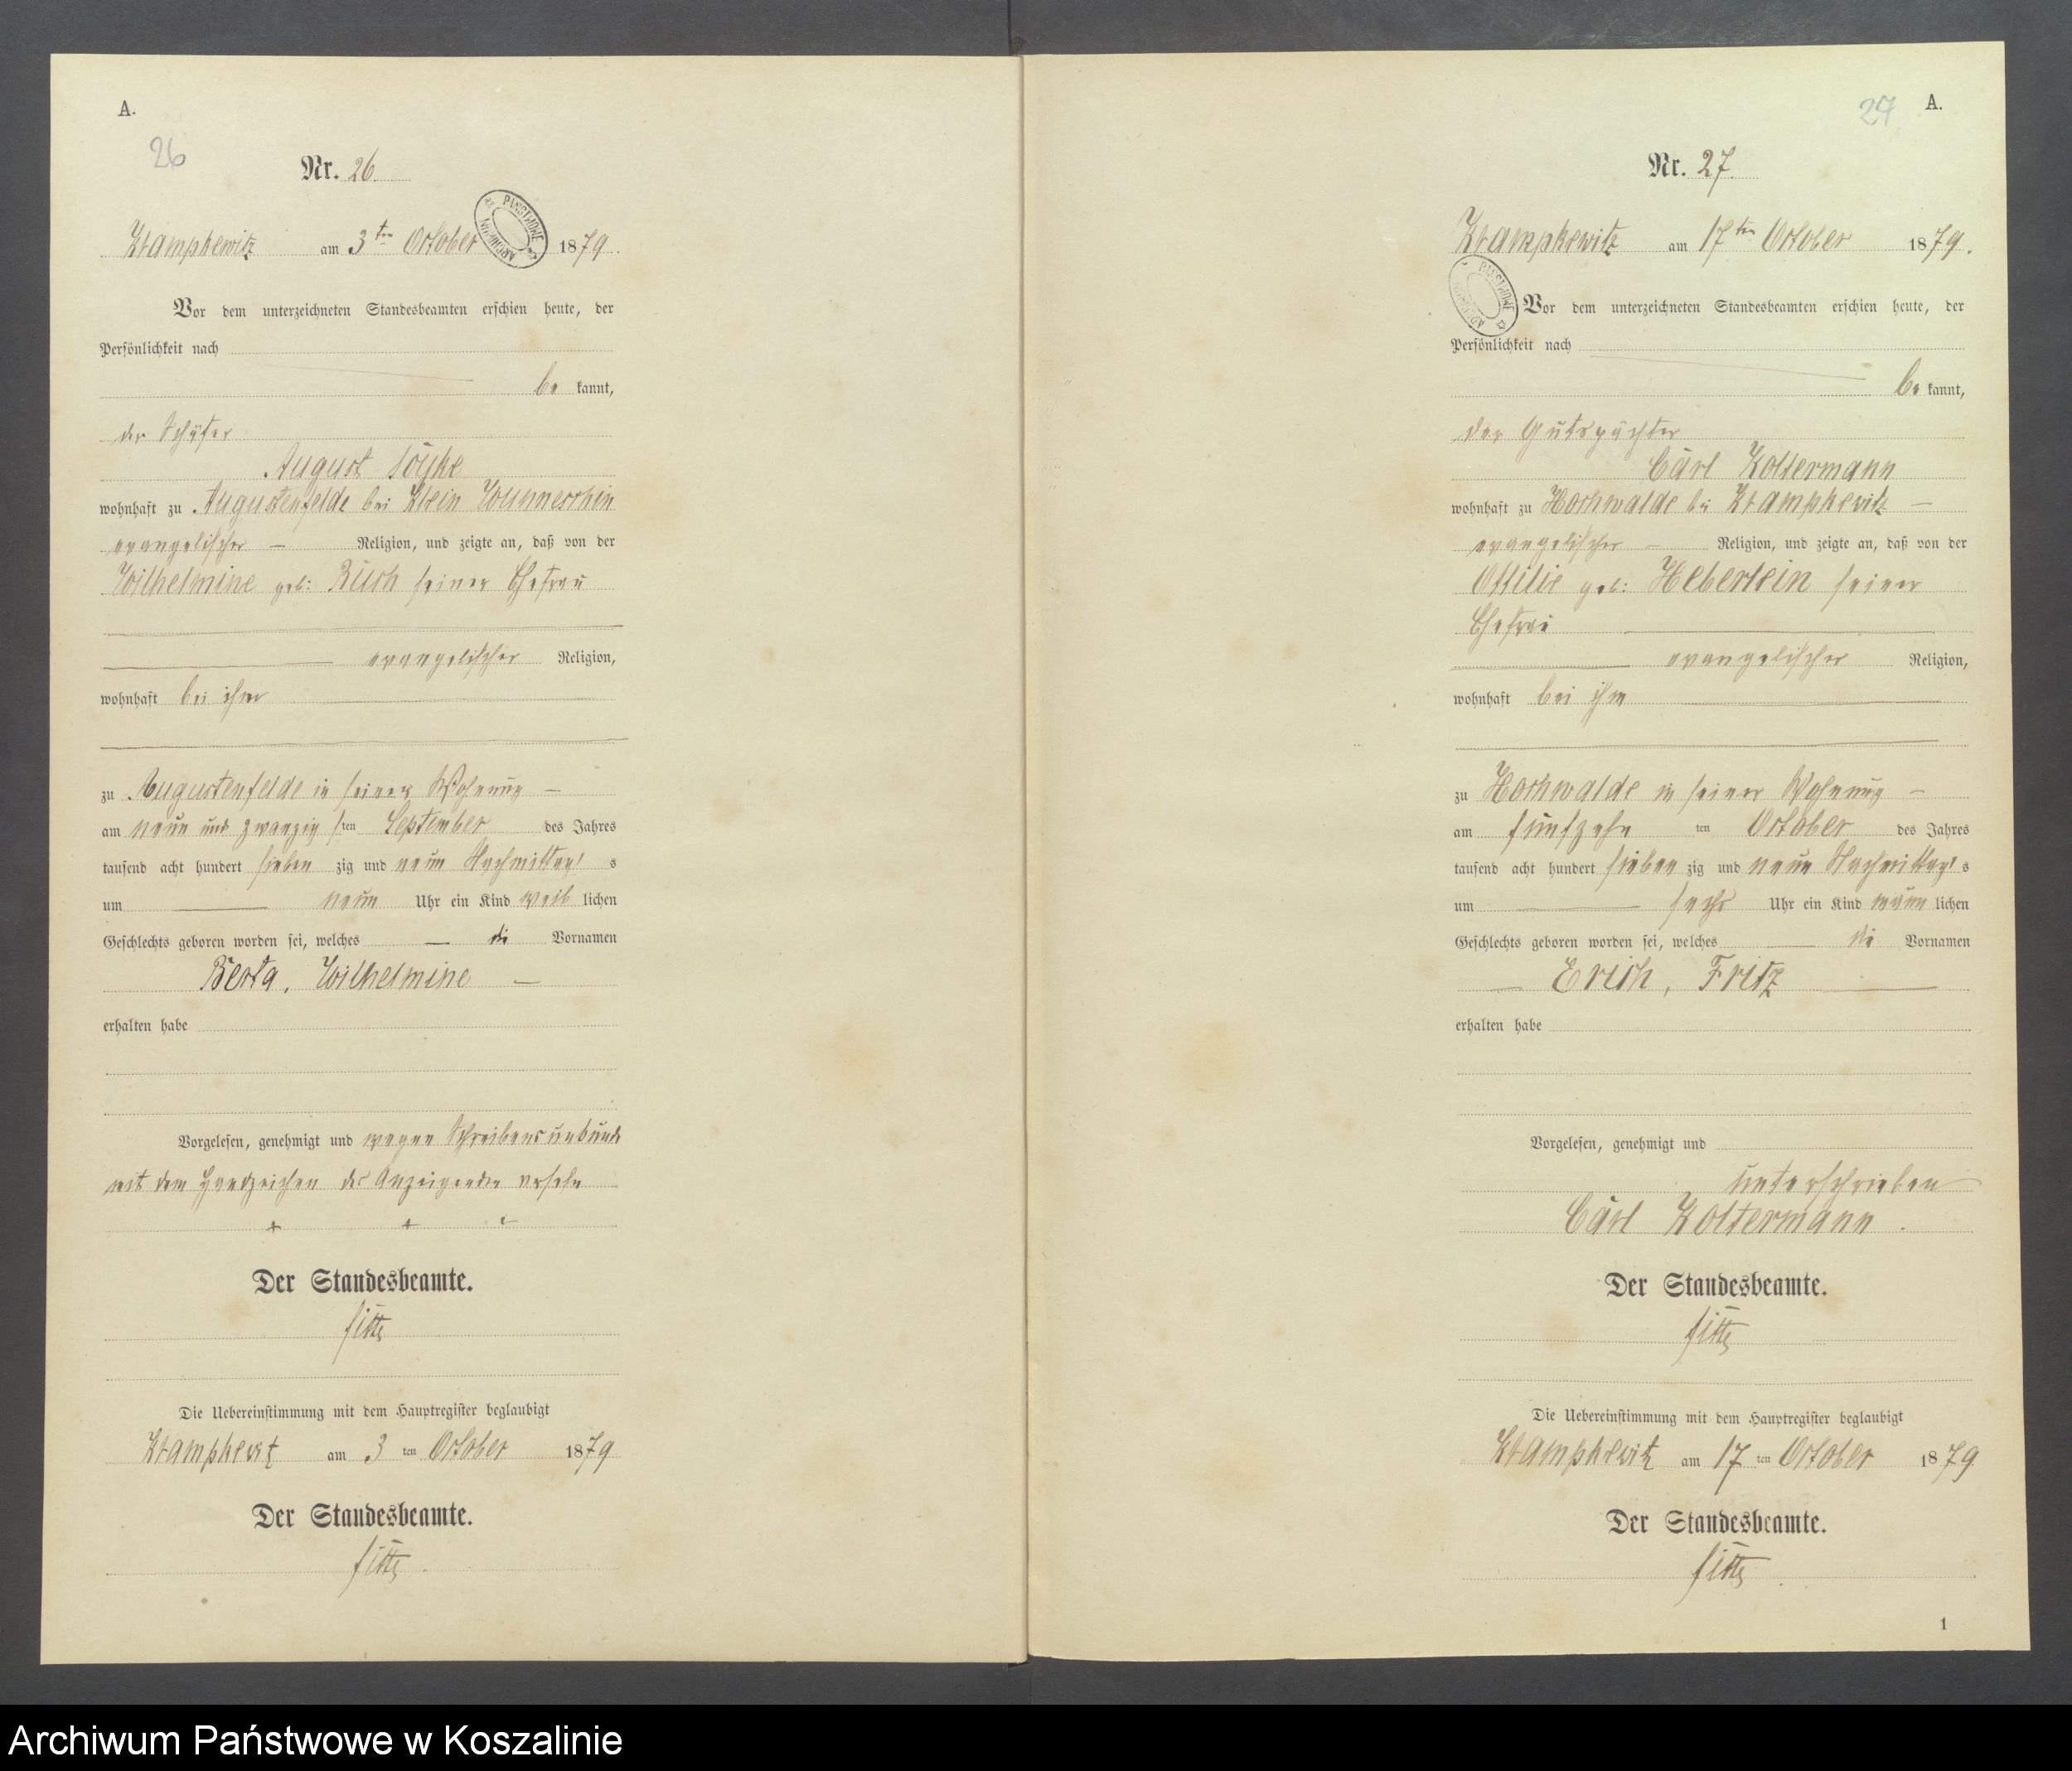 A.
26
Nr. 26
Krampkewitz am 3ten October 1879.
Vor dem unterzeichneten Standesbeamten erschien heute, der
Persönlichkeit nach
be kannt,
der Schäfer
August
wohnhaft zu Augustenfelde bei Klein Wunneschin
evangelischer Religion, und zeigte an, daß von der
Wilhelmine geb: Rusch seiner Ehefrau
evangelischer Religion,
wohnhaft bei ihm
zu Augustenfelde in seiner Wohnung
am neun und zwanzig sten September des Jahres
tausend acht hundert sieben zig und neun Nachmittag s
um neun Uhr ein Kind weib lichen
Geschlechts geboren worden sei, welches die Vornamen
Berta, Wilhelmine
erhalten habe
Vorgelesen, genehmigt und wegen Schreibensunkunde
mit dem Handzeichen des Anzeigenden versehn
+ + +
Der Standesbeamte.
Die Uebereinstimmung mit dem Hauptregister beglaubigt
Krampkewitz am 3 ten October 1879
Der Standesbeamte.
27 A.
Nr. 27.
Krampkewitz am 17ten October 1879.
PAŃSTWOWE ARCHIWUM
Vor dem unterzeichneten Standesbeamten erschien heute, der
Persönlichkeit nach
be kannt,
der Gutspächter
Carl Koltermann
wohnhaft zu Hochwalde bei Krampkewitz
evangelischer Religion, und zeigte an, daß von der
Ottilie geb: Heberlein seiner
Ehefrau
evangelischer Religion,
wohnhaft bei ihm
zu Hochwalde in seiner Wohnung
am fünfzehn ten October des Jahres
tausend acht hundert sieben zig und neun Nachmittag s
um sechs Uhr ein Kind männ lichen
Geschlechts geboren worden sei, welches die Vornamen
Erich, Fritz
erhalten habe
Vorgelesen, genehmigt und
unterschrieben
Carl Koltermann.
Der Standesbeamte.
Die Uebereinstimmung mit dem Hauptregister beglaubigt
Krampkewitz am 17 ten October 1879
Der Standesbeamte.
1
Archiwum Państwowe w Koszalinie